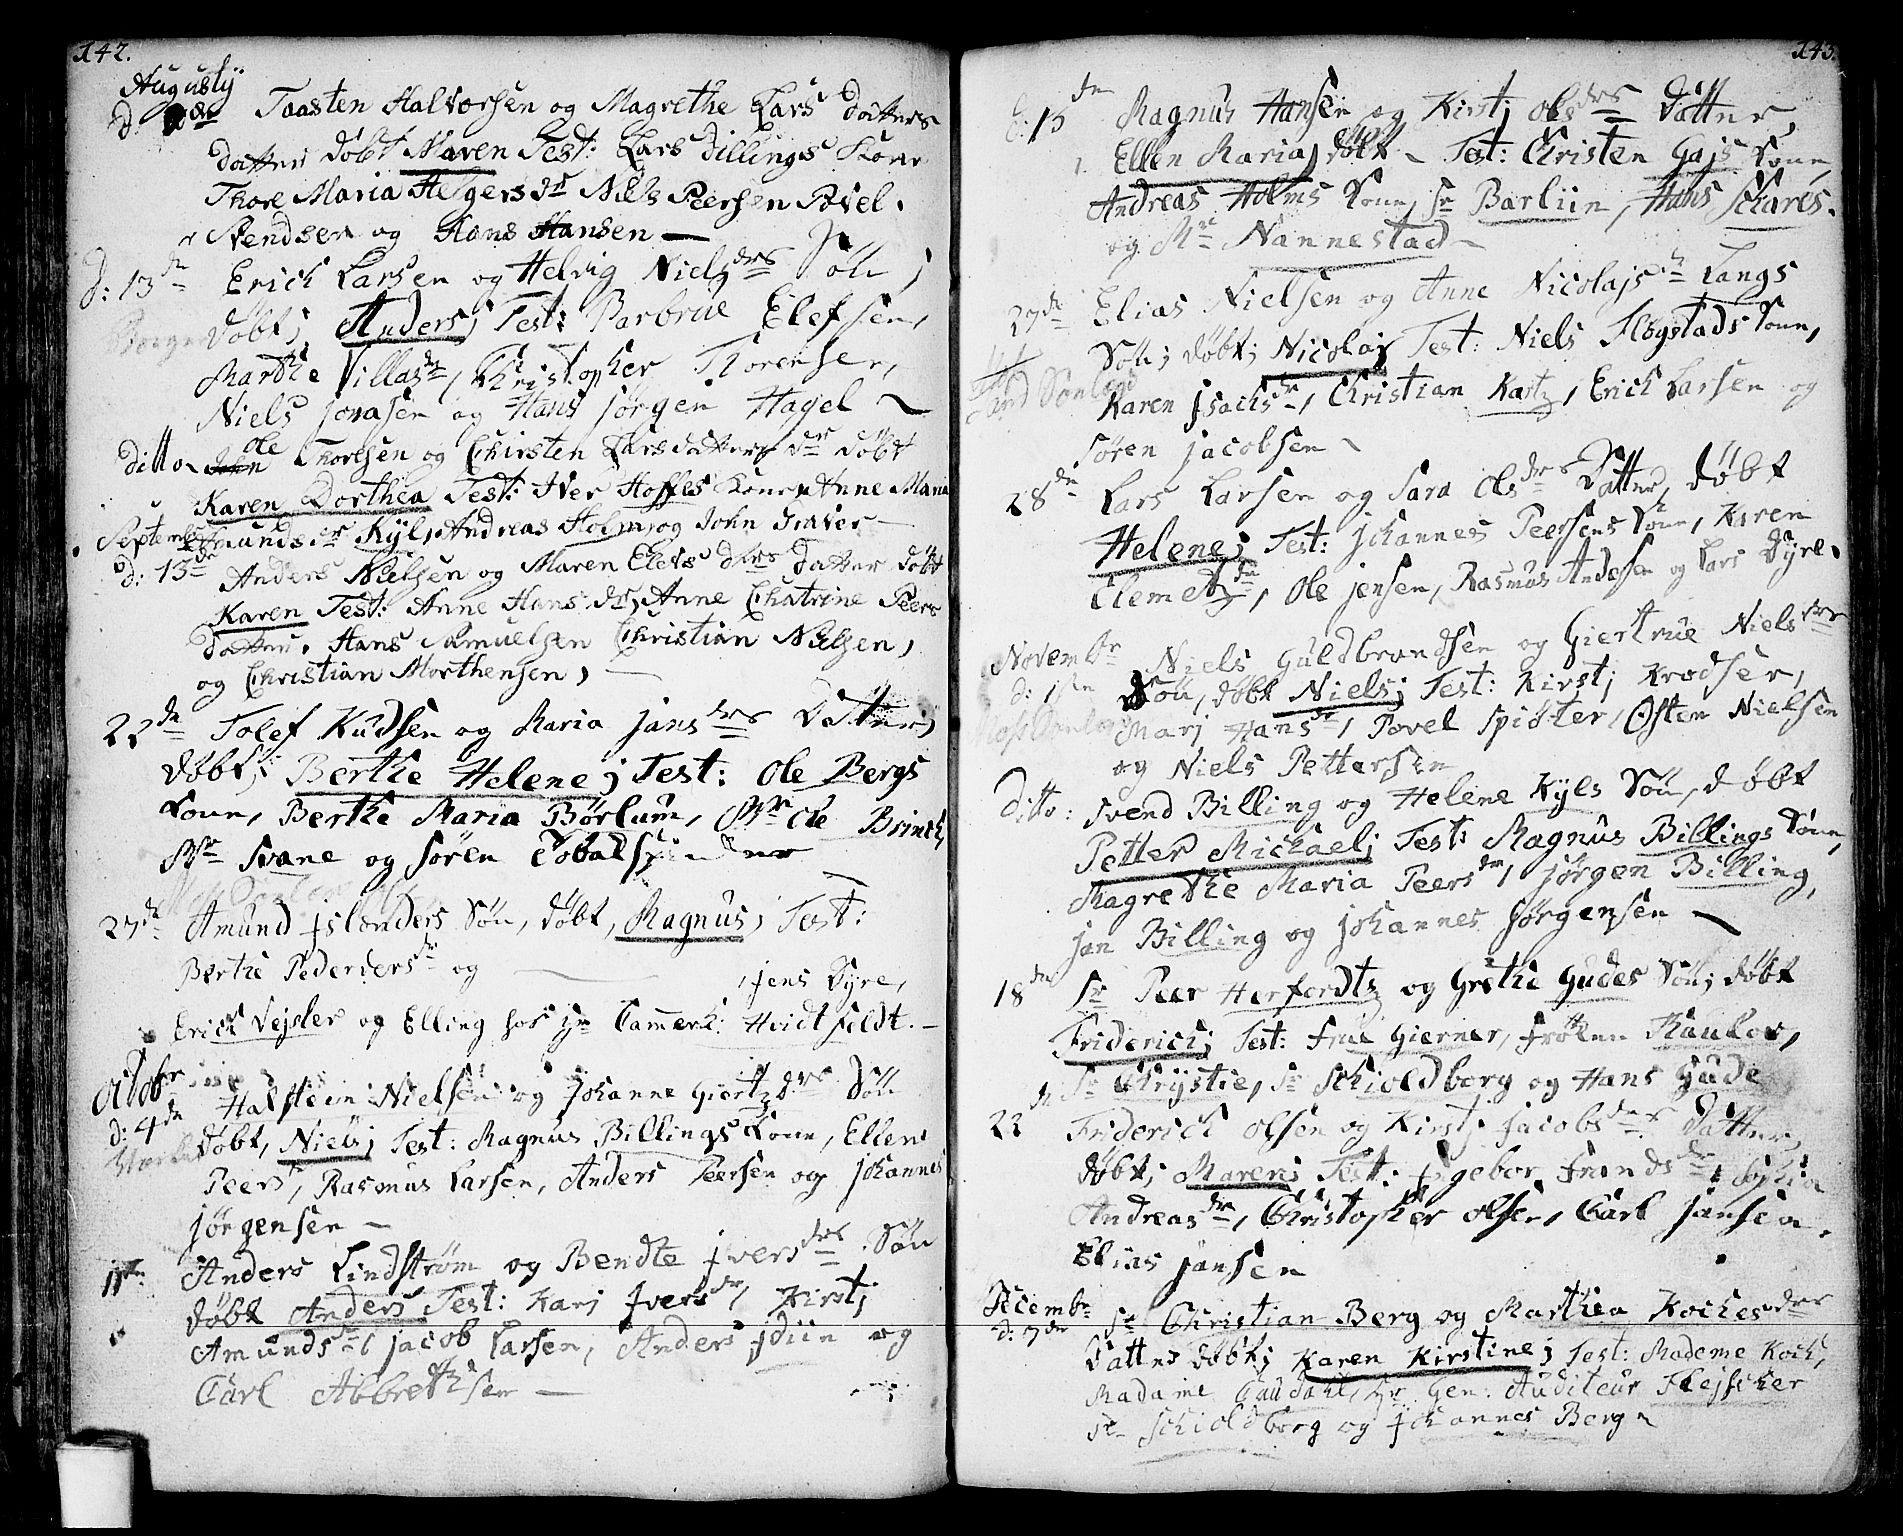 142.
Augustij
d: Taasten Halvorsen og Magrethe Lars Datters
Datter døbt Maren Test: Lars Dillings Kone
Thore Maria Helgers dr Niels Peersen Povel
Svendsen og Hans Hansen —
d: 13de Erich Larsen og Helvig Niels drs Søn ;
døbt; Anders; Test: Barbrue Elefsen,
Marthe Villas dr, Christopher Thorensen,
Niels Jonasen og Hans Jørgen Hagel —
ditto Ole Thoresen og Chirsten Larsdatters dr døbt
Karen Dorthea Test: Iver Hoffes Kone, Anne Maria
Septembr Kyl, Andreas Holm, og John
d: 13de Anders Nielsen og Maren Elevs drs Datter døbt
Karen Test: Anne Hans dr, Anne Chatrine Peers
Datter, Hans Samuelsen Christian Nielsen,
og Christian Morthensen, —
22de Tolef Kudsen og Maria Jans drs Datter;
døbt; Berthe Helene; Test: Ole Bergs
Kone, Berthe Maria Børlum, Mr Ole Brinch,
Mr Svane og Søren
27de Amund Islanders Søn, døbt, Magnus; Test:
Berthe Peders dr og — , Jens Dyre,
Erich Vejsler og Elling hos Hr Camerh: Hvidtfeldt. —
Octobr
d: 4de Halstein Nielsen og Johanne Giertz drs Søn
døbt, Niels; Test: Magnus Billings Kone, Ellen
Peers, Rasmus Larsen, Anders Peersen og Johannes
Jørgensen —
11te Anders Lindstrøm og Bendte Ivers drs Søn
døbt Anders Test: Kari Ivers dr, Kirsti
Amunds dr, Jacob Larsen, Anders Idiin og
Carl Abbrethsen —
143.
15de Magnus Hansen og Kirsti Ols drs Datter,
Ellen Maria, døbt — Test: Christen Gajs Kone,
Andreas Holms Kone, Sr Barliin, Hans Schares.
og Mr Nannestad —
27de Elias Nielsen og Anne Nicolajs dr Langs
Søn; døbt; Nicolaj Test: Niels Flogstads Kone,
Karen Isachs dr, Christian Kartz, Erich Larsen og
Søren Jacobsen —
28de Lars Larsen og Sara Ols drs Datter, døbt
Helene; Test: Johannes Peersens Kone, Karen
Clemetz dr, Ole Jensen, Rasmus Andersen og Lars Dyre.
Novembr Niels Guldbrandsen og Giertrue Niels drs
d: 1ste Søn, døbt Niels; Test: Kirsti Krodser,
Mari Hans dr, Povel Spiøter, Østen Nielsen
og Niels Pettersen
Ditto: Svend Billing og Helene Kyls Søn, døbt
Petter Michael; Test: Magnus Billings Kone,
Magrethe Maria Peers dr, Jørgen Billing,
Jan Billing og Johannes Jørgensen —
18de Sr Peer Herfordtz og Grethe Gudes Søn; døbt
Friderich; Test: Frue Gierner, Frøken Kaulov,
Sr Chrystie, Sr Schioldborg og Hans Gude
22de Friderich Olsen og Kirsti Jacobs drs Datter,
døbt; Maren; Test: Igebor dr, Sophia
Andreas dr, Christopher Olsen, Carl Jansen.
Elias Jansen
Decembr
d: 7de Sr Christian Berg og Marthea Koches drs
Datter døbt; Karen Kirstine; Test: Madame Koch,
Madame Gaudahl, Hr Gen: Auditeur Flejscher
Sr Schioldborg og Johannes Berg